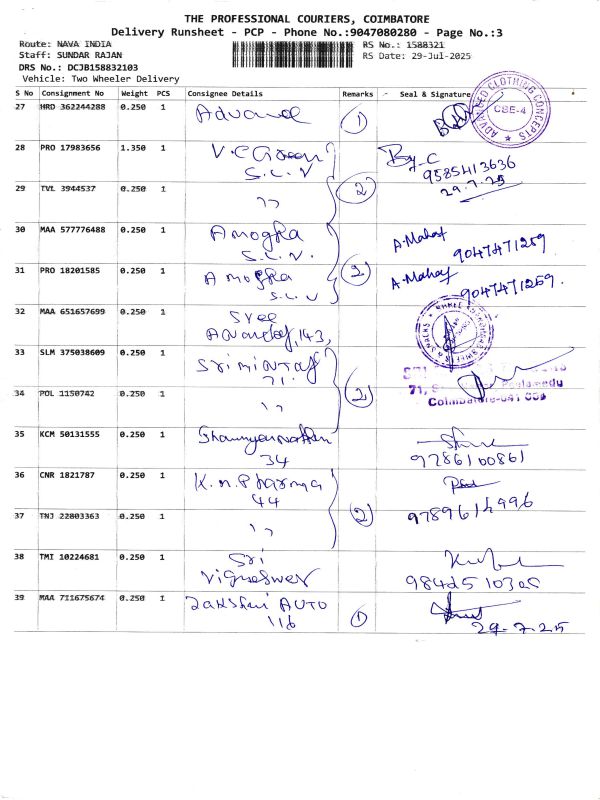 THE PROFESSIONAL COURIERS, COIMBATORE
Delivery Runsheet - PCP - Phone No.:9047080280 - Page No.:3
Route: NAVA INDIA
RS No.: 1588321
Staff: SUNDAR RAJAN
RS Date: 29-Jul-2025
DRS No.: DCJB158832103
Vehicle: Two Wheeler Delivery
S No Consignment No Weight PCS Consignee Details Remarks Seal & Signature
27 HRD 362244288 0.250 1 Advance 1
ADVANCED CLOTHING CONCEPTS
CBE-4
28 PRO 17983656 1.350 1 V.C Green
S.L.V
9585413636
29.7.25
29 TVL 3944537 0.250 1 ,, 2
30 MAA 577776488 0.250 1 Amogha
S.L.V.
A.Mahaf
9047471259
31 PRO 18201585 0.250 1 Amogha 2
S.L.V
A.Mahaf
9047471259.
32 MAA 651657699 0.250 1 Sree
143,
33 SLM 375038609 0.250 1
71.
34 POL 1150742 0.250 1 ,, 2
71,
Coimbatore-641
35 KCM 50131555 0.250 1
34
9786100861
36 CNR 1821787 0.250 1 K.M.Pharma
44
9789614996
37 TNJ 22803363 0.250 1 ,, 2
38 TMI 10224681 0.250 1 Sri
Vigneswer
39 MAA 711675674 0.250 1 AUTO 1
116
29-7-25